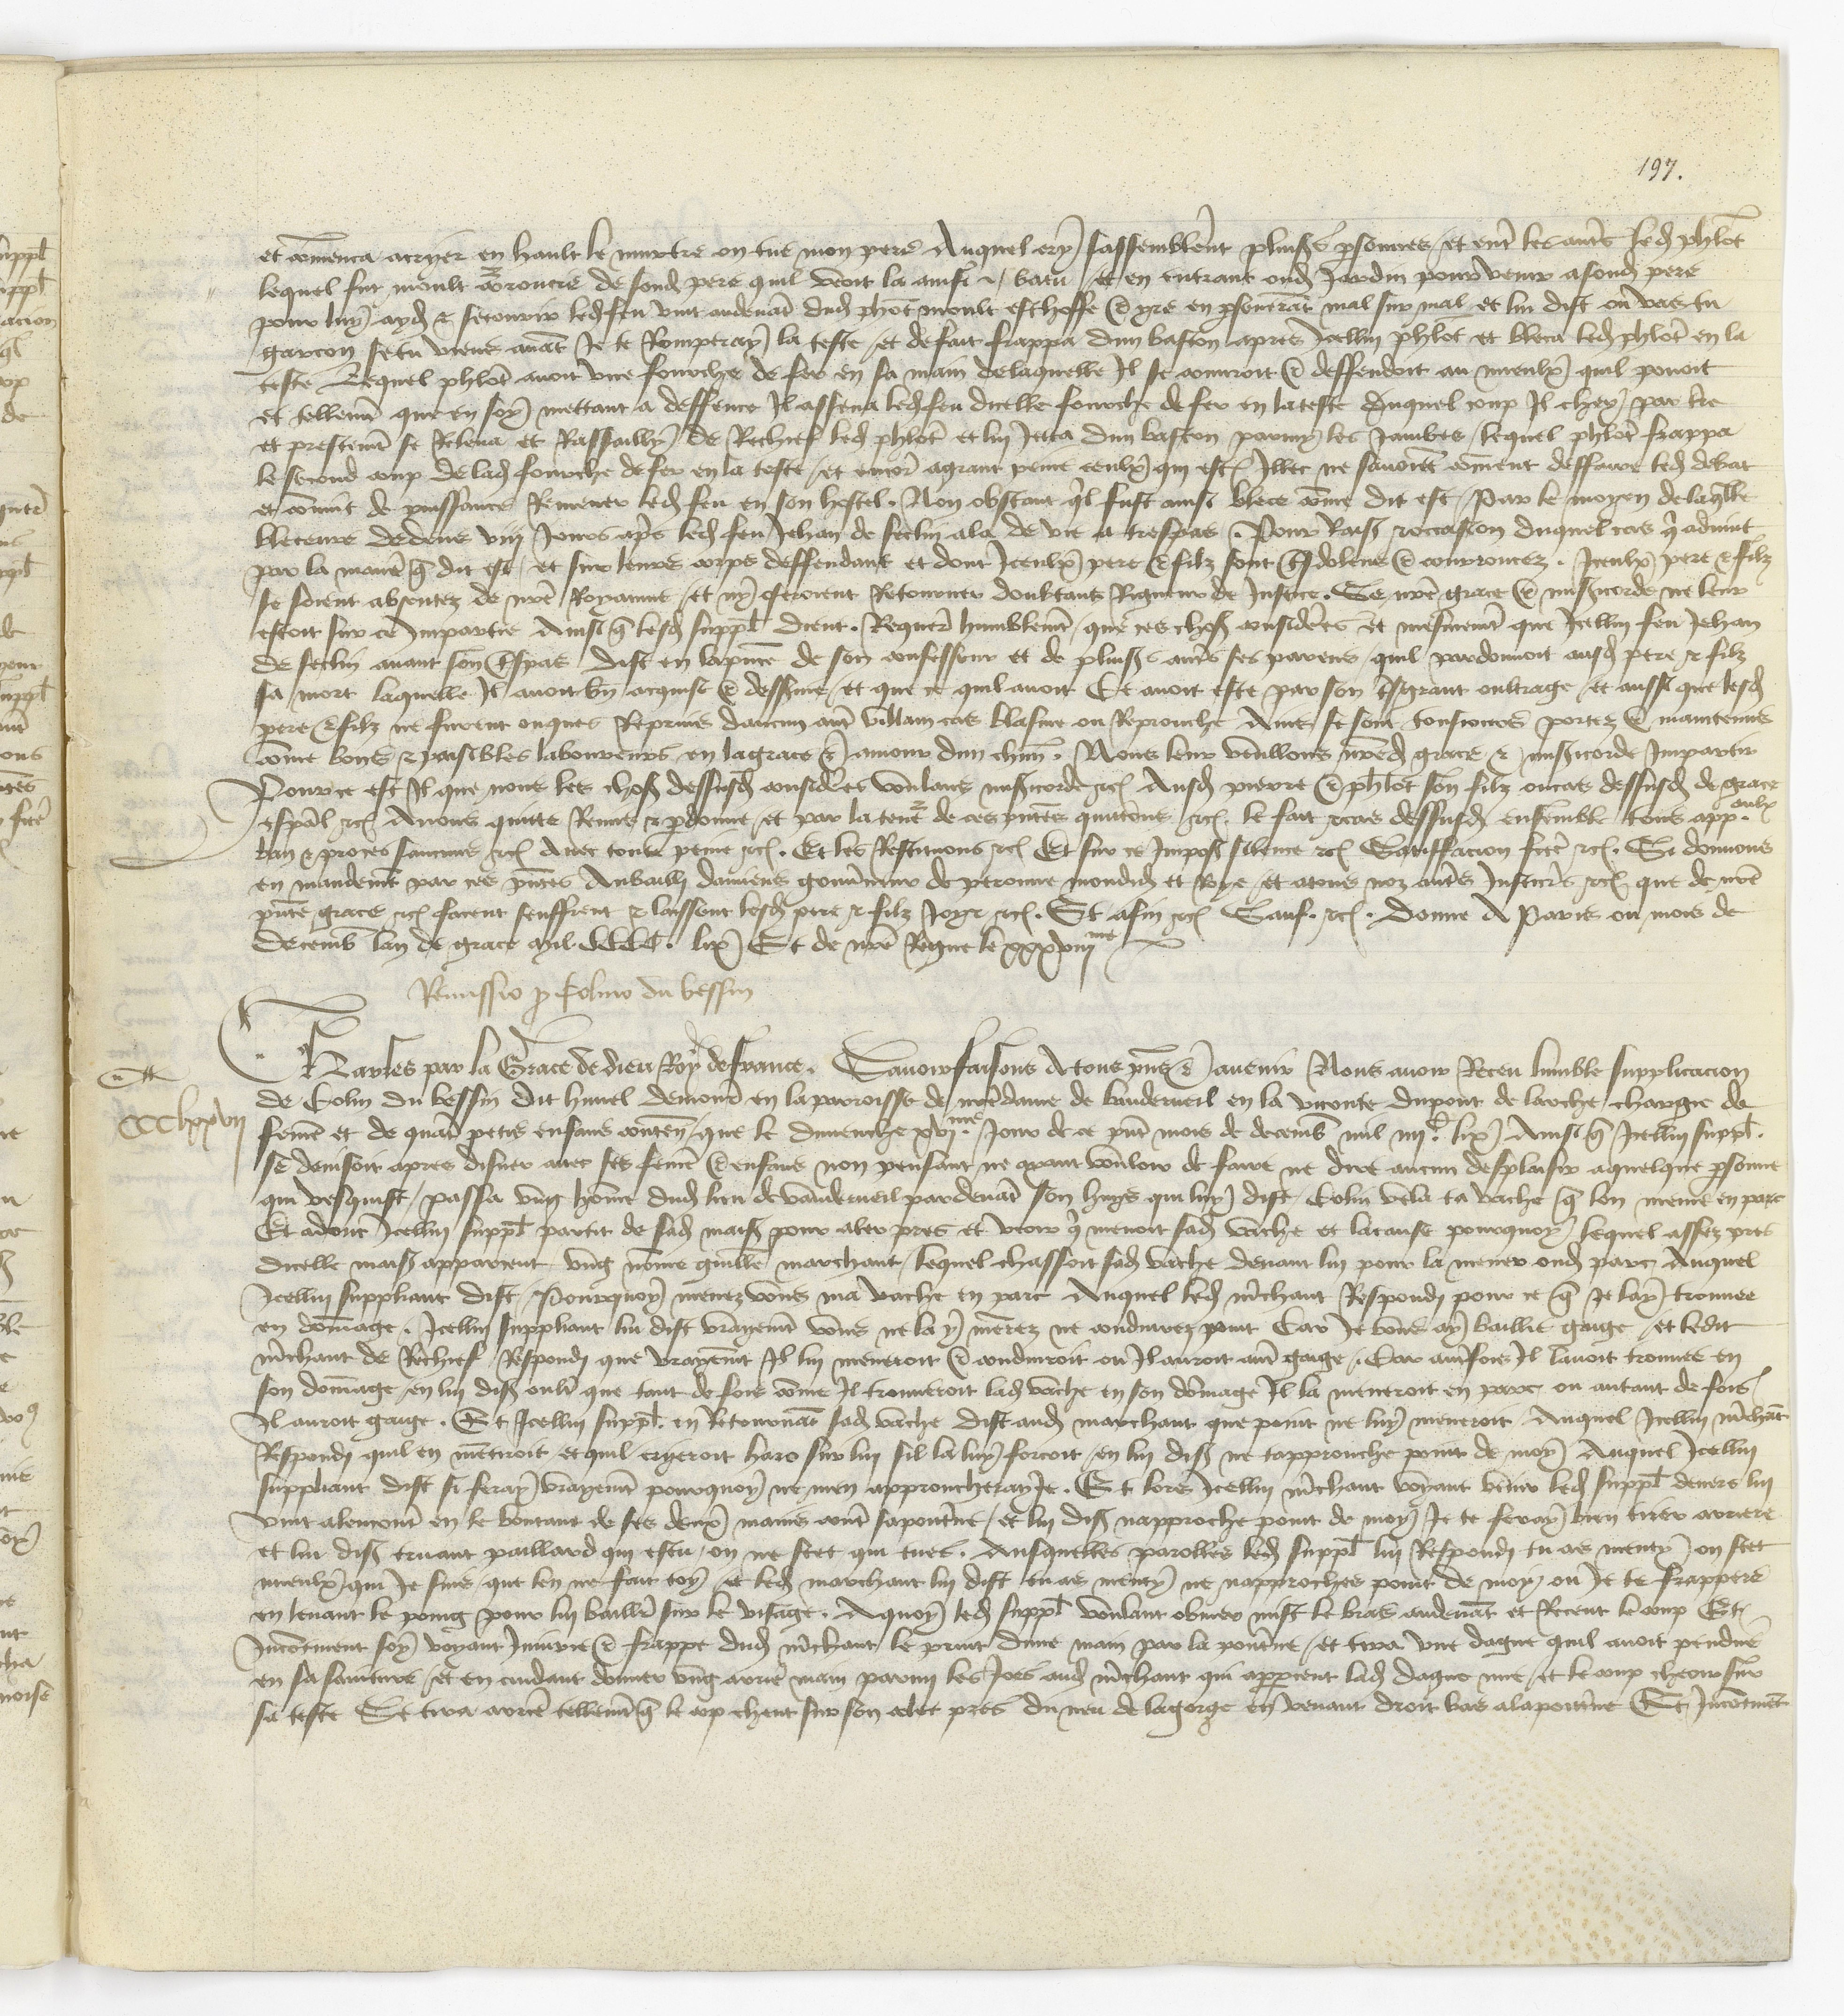 197.
et commenca a cryer en hault le murtre on tue mon pere Auquel cry sassemblerent plus̄ psonnes et entˀ les autˀs led phlot
lequel fut moult courroucie de sond pere quil veoit la ainsi batu et en entrant oud Jardin pour venir a sond pere
pour luy aydˀ & secourir led feu vint audevāt dud phot moult eschoffe & yre en pseverāt mal sur mal et lui dist ou vas tu
garcon se tu viens avāt Je te Romperay la teste et de fait frappa dun baston apres Icellui phlot et bleca led phlot en la
teste Lequel phlot avoit une fourche de fer en sa main de laquelle Il se couvroit & deffendoit au mieulx quil povoit
et tellemt que en soy mettant a deffence Il assena led feu dicelle fourche de fer en la teste Duquel coup Il chey par tˀre
et prestemt se Releva et Rassailly de Rechief led phlot et lui Jetta dun baston parmy les Jambes lequel phlot frappa
le second coup de lad fourche de fer en la teste et encorˀ a grant peine ceulx qui estˀ Illec ne savoiēt cōment deffaire led debat
et convīt de puissance Remener led feu en son hostel. Non obstant ql fust ainsi blece cōme dit est Par le moyen de laqlle
bleceure dedens viij Jours apˀs led feu Jehan de seclin ala de vie a trespas. Pour Raisˀ & occasion duquel cas q advint
par la maniē q dit est et sur leurs corps deffendant et dont Iceulx pere & filz sont tˀsdolens & courroucez. Iceulx pere & filz
se soient absentez de nrē Royaume et ny oseroient Retourner doubtans Rigueur de Justice. Se nrē grace & misˀicorde ne leur
estoit sur ce Impartie Ainsi q lesd supplˀ dient. Requerˀ humblemt que ces chosˀ considˀees et mesmemt que Icellui feu Jehan
de seclin avant son tˀspas dist en la pn̄ce de son confesseur et de plus̄ autˀs ses parens quil pardonnoit ausd pere & filz
sa mort laquelle Il avoit bn̄ acquise & desservie et que ce quil avoit Ce avoit este par son tˀsgrant oultrage et aussi que lesd
pere & filz ne furent onques Reprins daucun autˀ villain cas blasme ou Reprouche Ains se sont tousiours portez & maintenus
cōme bons & paisibles laboureurs en la grace & amour dun chūn. Nous leur vueillons nrēd grace & misˀicorde Impartir
Pour ce est Il que nous les chosˀ dessusd considˀees voulans misˀicorde &c Ausd pierre & phlot son filz ou cas dessusd de grace
espāl &c Avons quitte Remis & pdonne et par la tenˀ de ces pn̄tes quictons &c. le fait & cas dessusd ensemble tous app.
eaulx
ban & proces saucuns &c Avec toute peine &c. Et les Restituons &c Et sur ce Imposˀ silence &c Satiffacion fctˀe &c. Si donnons
en mandemt par ces pn̄tes Au bailli damiens gouvˀneur de peronne mondid et Roye et a tous noz autˀs Justicˀs &c que de nrē
pn̄te grace &c facent seuffrent & laissent lesd pere & filz Joyr &c. Et afin &c Sauf. &c. Donne A Paris ou mois de
Decemb lan de grace Mil CCCC. lix Et de nrē Regne le xxxviii me
Remissio p Colino du bessin
CCClxxvij
Charles par la Grace de dieu Roy de france. Savoir faisons A tous pn̄s & avenir Nous avoir Receu lumble supplicacion
de Colin du bessin dit huuel demourˀ en la parroisse de nrēdame de vauderueil en la viconte dupont de larche chargie de
femē et de quatˀ petis enfans contenˀ que le dimenche xvj me Jour de ce pn̄t mois de decemb mil iiij c lix Ainsi q Icellui supplˀ.
se devisoit apres disner avec ses femē & enfans non pensant ne ayant vouloir de faire ne dire aucun desplaisir a quelque psonne
qui vesquist passa ung home dud lieu de vauderueil pardevāt son huys qui luy dist Colin vela ta vache q lon meine en parc
Et adonc Icellui supplˀ partit de sad maisˀ pour aler pres et veoir q menoit sad vache et la cause pourquoy lequel assez pres
dicelle maisˀ apparceut ung nōme guille marchant lequel chassoit sad vache devant lui pour la mener oud parc Auquel
Icellui suppliant dist Pourquoy menez vous ma vache en parc Auquel led mˀchant Respondi pour ce q Je lay trouvee
en dōmage. Icellui suppliant lui dist vrayemt vous ne la y menrez ne conduirez point Car Je vous ay baillie gaige et ledit
mˀchant de Rechief Respondi que vrayemt Il lui meneroit & conduiroit ou Il auroit autˀ gaige. Car autˀfois Il lavoit trouvee en
son dōmage en lui disˀ oultˀ que tant de fois cōme Il trouveroit lad vache en son dōmage Il la meneroit en parc ou autant de fois
Il auroit gaige. Et Icellui supplˀ. en Retournāt sad vache dist aud marchant que point ne luy meneroit Auquel Icellui mˀchāt
Respondi quil en mētiroit et quil cryeroit haro sur lui sil la luy forcoit en lui disˀ ne tapprouche point de moy Auquel Icellui
suppliant dist si feray vrayemt pourquoy ne men approucheray Je. Et lors Icellui mˀchant voyant venir led supplˀ devers lui
vint alencontˀ en le boutant de ses deux mains contˀ sa poictˀine et lui disˀ napproche point de moy Je te feray bien tirer arriere
et lui disˀ truant paillard qui es tu on ne scet qui tu es. Ausquelles parolles led supplˀ lui Respondi tu as menty on scet
mieulx qui Je suis que len ne fait toy et led marchant lui dist tu as menty ne napproches point de moy ou Je te frapperē
en levant le poing pour lui baillˀ sur le visage. A quoy led supplˀ voulant obvier mist le bras audevāt et Receut le coup Et
Incontinent soy voyant Iniurie & frappe dud mˀchant le print dune main par la poictˀine et tira une dague quil avoit pendue
en sa sainture et en cuidant donner ung arrierˀ main parmi les Joes aud mˀchant qui appceut lad dague nue et le coup cheoir sur
sa teste Se tira arriē tellemt q le cop cheut sur son colet pres du neu de la gorge en venant droit bas a la poictˀine Et Incontinēt